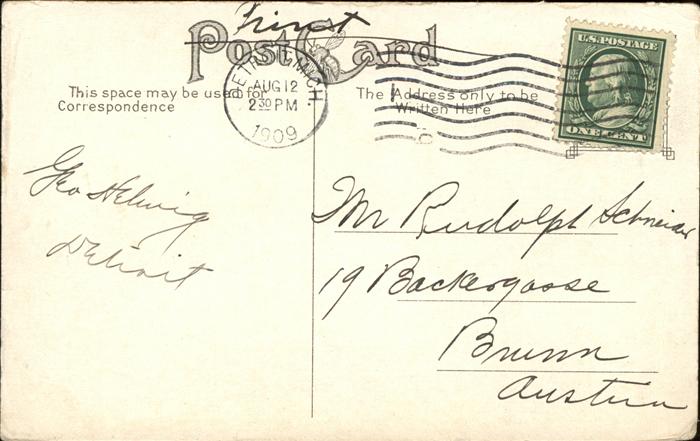 Post Card
This space may be used for
Correspondence
DETROIT, MICH.
AUG 12
2 30 PM
1909
The Address only to be
Written Here
U.S. POSTAGE
ONE CENT
Geo Helwig
Detroit
Mr Rudolph Schneider
19 Backergasse
Brunn
Austria